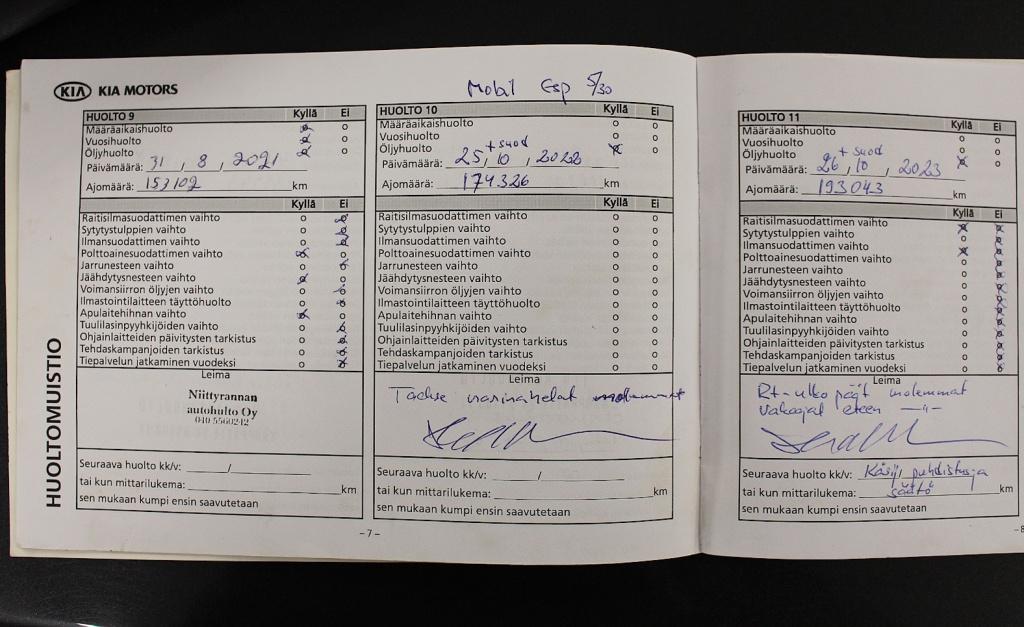 KIA KIA MOTORS
HUOLTOMUISTIO
HUOLTO 9 Kyllä Ei
Määräaikaishuolto o
Vuosihuolto o
Öljyhuolto o
Päivämäärä: 31, 8, 2021
Ajomäärä: 153102 km
Kyllä Ei
Raitisilmasuodattimen vaihto o
Sytytystulppien vaihto o
Ilmansuodattimen vaihto o
Polttoainesuodattimen vaihto o
Jarrunesteen vaihto o
Jäähdytysnesteen vaihto o
Voimansiirron öljyjen vaihto o
Ilmastointilaitteen täyttöhuolto o
Apulaitehihnan vaihto o
Tuulilasinpyyhkijöiden vaihto o
Ohjainlaitteiden päivitysten tarkistus o
Tehdaskampanjoiden tarkistus o
Tiepalvelun jatkaminen vuodeksi o
Leima
Niittyrannan
autohuolto Oy
040 5560242
Seuraava huolto kk/v: /
tai kun mittarilukema: km
sen mukaan kumpi ensin saavutetaan
- 7 -
Mobil Esp 5/30
HUOLTO 10 Kyllä Ei
Määräaikaishuolto o o
Vuosihuolto o o
Öljyhuolto + suod o
Päivämäärä: 25, 10, 2022
Ajomäärä: 174326 km
Kyllä Ei
Raitisilmasuodattimen vaihto o o
Sytytystulppien vaihto o o
Ilmansuodattimen vaihto o o
Polttoainesuodattimen vaihto o o
Jarrunesteen vaihto o o
Jäähdytysnesteen vaihto o o
Voimansiirron öljyjen vaihto o o
Ilmastointilaitteen täyttöhuolto o o
Apulaitehihnan vaihto o o
Tuulilasinpyyhkijöiden vaihto o o
Ohjainlaitteiden päivitysten tarkistus o o
Tehdaskampanjoiden tarkistus o o
Tiepalvelun jatkaminen vuodeksi o o
Leima
molemmat
Seuraava huolto kk/v: /
tai kun mittarilukema: km
sen mukaan kumpi ensin saavutetaan
HUOLTO 11 Kyllä Ei
Määräaikaishuolto o o
Vuosihuolto o o
Öljyhuolto + suod o
Päivämäärä: 26, 10, 2023
Ajomäärä: 193043 km
Kyllä Ei
Raitisilmasuodattimen vaihto
Sytytystulppien vaihto o
Ilmansuodattimen vaihto
Polttoainesuodattimen vaihto o
Jarrunesteen vaihto o
Jäähdytysnesteen vaihto o
Voimansiirron öljyjen vaihto o
Ilmastointilaitteen täyttöhuolto o
Apulaitehihnan vaihto o
Tuulilasinpyyhkijöiden vaihto o
Ohjainlaitteiden päivitysten tarkistus o
Tehdaskampanjoiden tarkistus o
Tiepalvelun jatkaminen vuodeksi o
Leima
Rt-ulko päät molemmat
eteen -"-
Seuraava huolto kk/v: Käsij. puhdistus ja
tai kun mittarilukema: säätö km
sen mukaan kumpi ensin saavutetaan